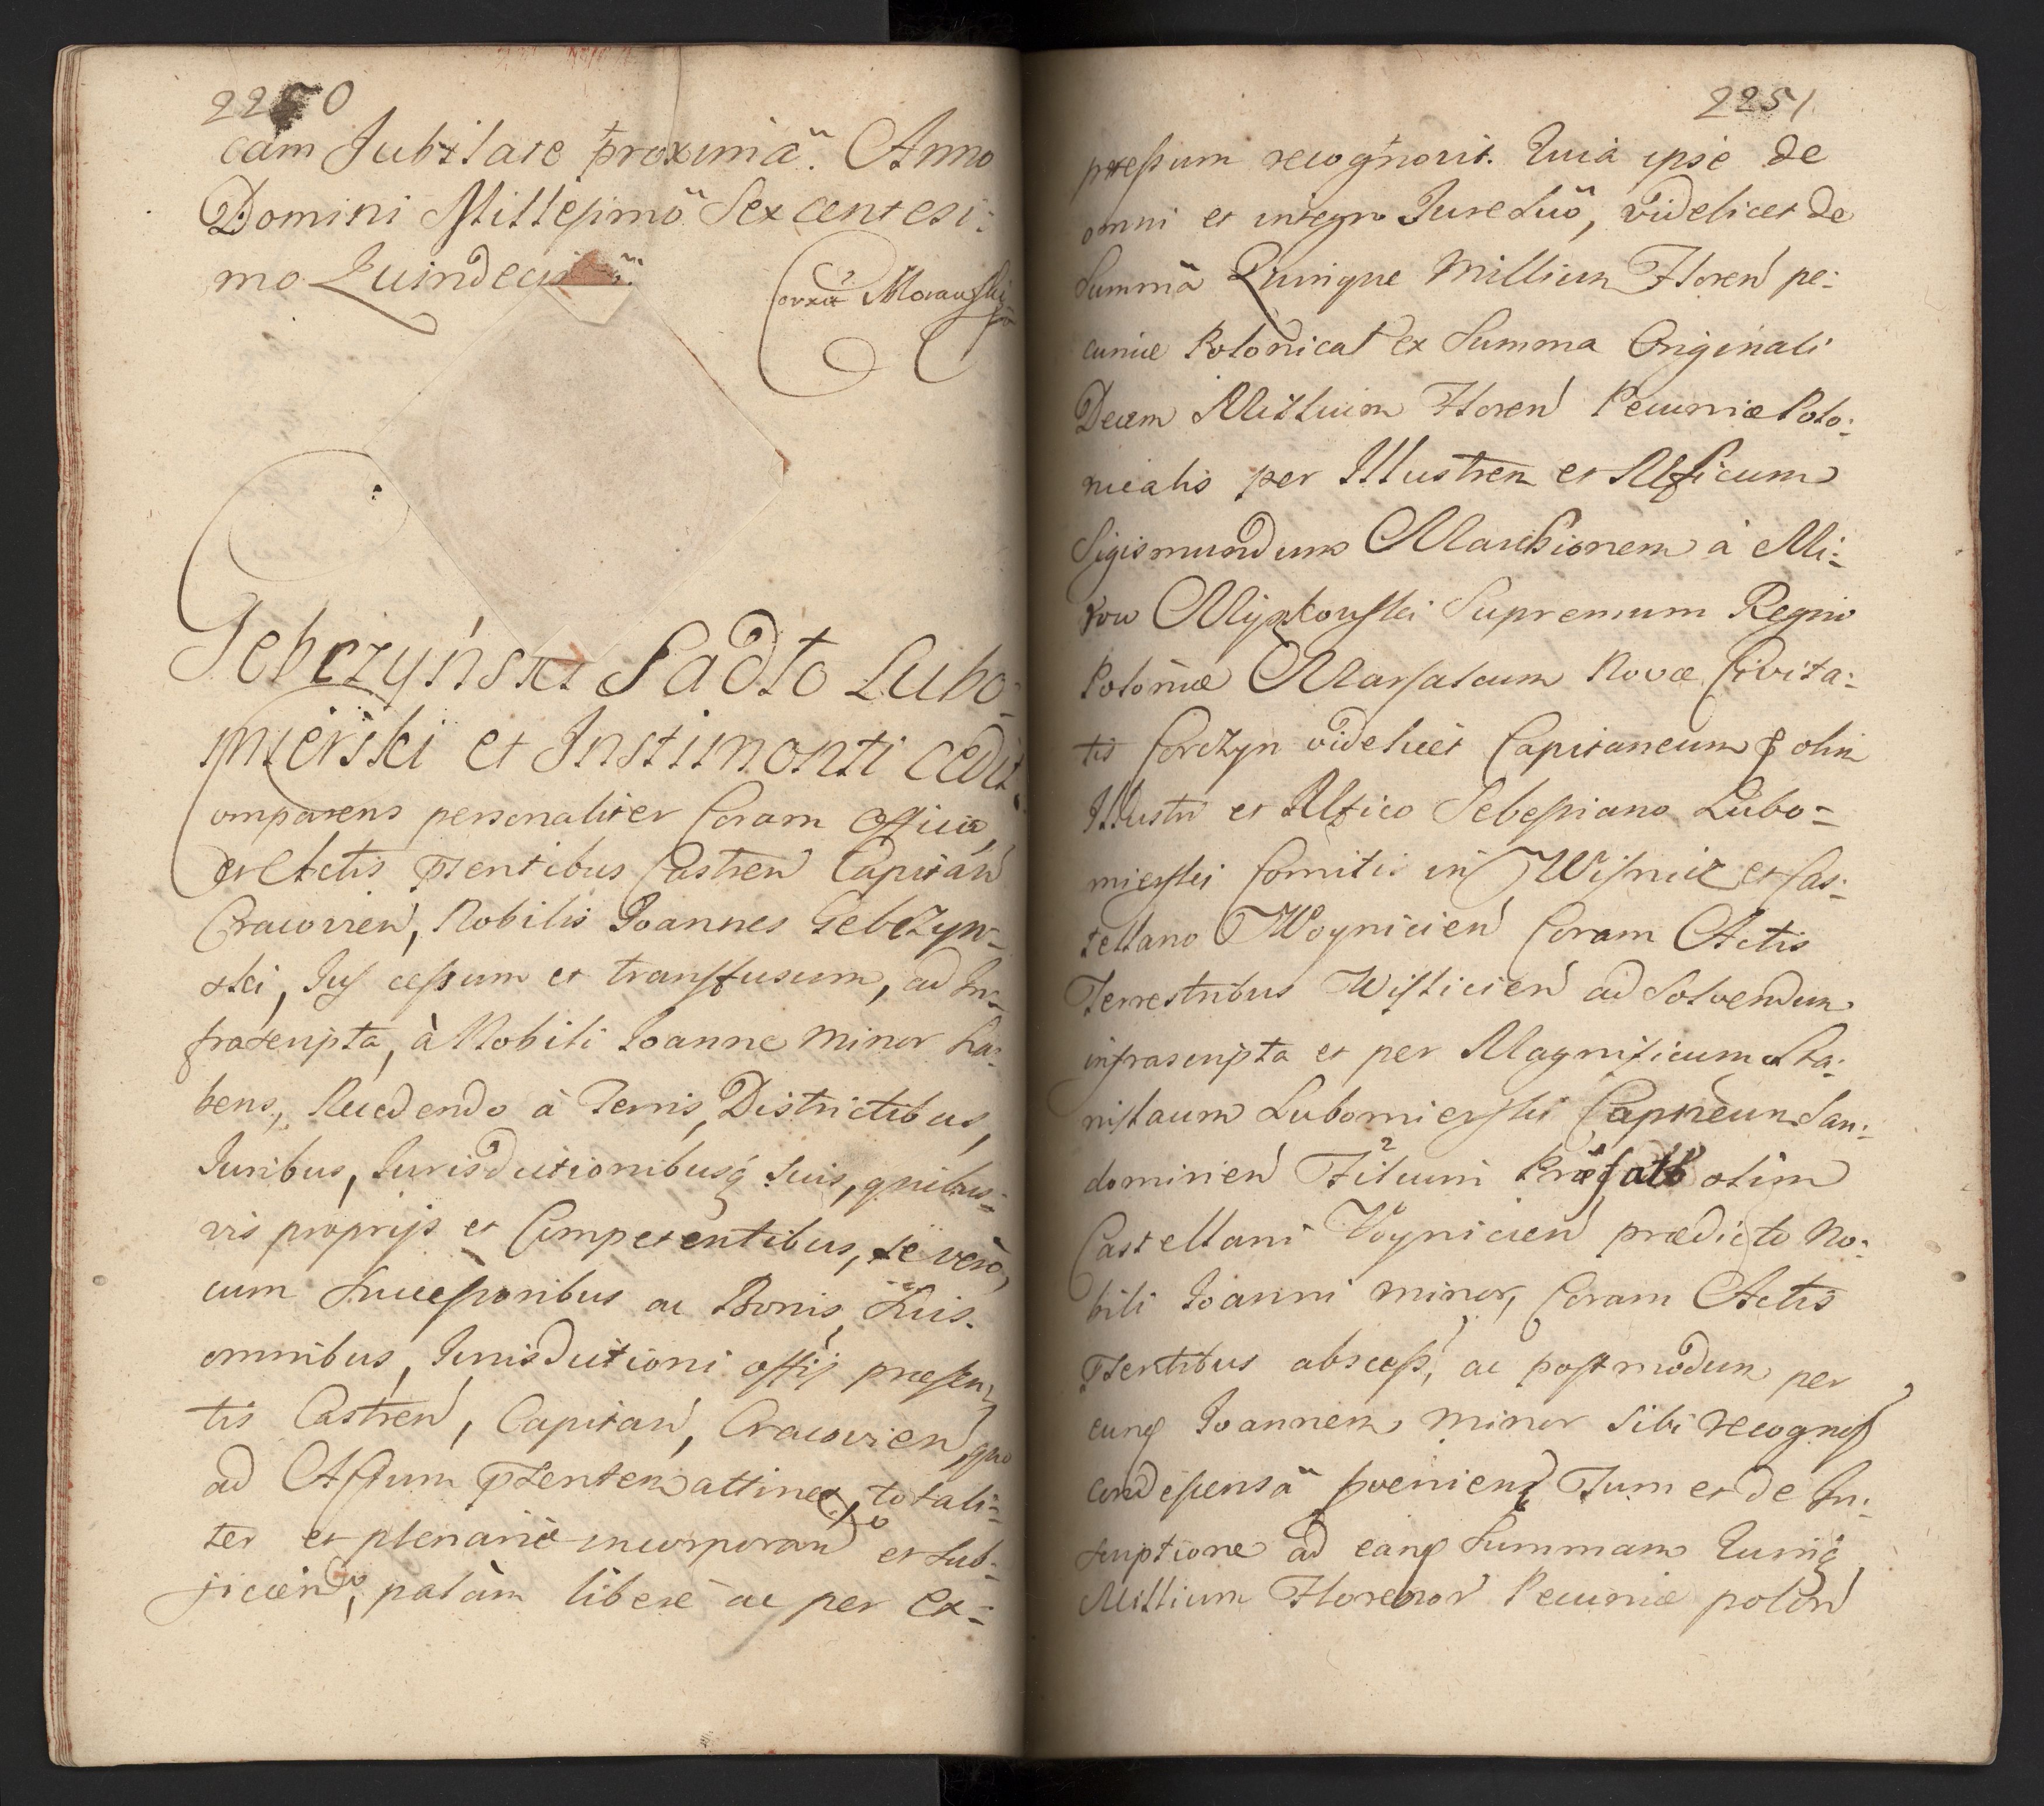 2250
cam Jubilate proximã. Anno
Domini Millesimõ Sexcentesi:
mo Quindecimõ.
Corxit Morawski
Gebczyński Sadło Lubo=
mierski et Instimonti cedit.
Comparens personaliter Coram Officio,
et Actis p̃sentibus Castren Capitan
Cracovien, Nobilis Joannes Gebczyn=
ski, Jus cessum et transfusum, ad In=
frascripta, à Nobili Joanne Minor ha:
bens, Recedendo à Terris, Districtibus,
Juribus, Jurisdictionibusq̃ suis, quibus=
vis proprijs et Competentibus, se verò,
cum Successoribus ac Bonis, suis.
omnibus, Jurisdictioni offij præsen=
tis Castren, Capitan, Cracovien, quo
ad Actum p̃sentem attinet, totali=
ter et plenarie incorporando et sub=
jiciendo, palàm liberè ac per Ex=
2251
pressum recognovit. Quia ipse de
omni et integro Jure Suõ, videlicet de
Summã Quinque Millium Floren pe:
cuniæ Polonical ex Summa Originali
Decem Millium Floren Pecuniæ Polo:
nicalis per Illustren et Mficum
Sigismundum Marchionem à Mi:
row Myszkowski Supremum Regni
Poloniæ Marsalcum Novæ Civita:
tis Corczyn videlicet Capitaneum p olim
Illustri et Mfico Sebesiano Lubo=
mierski Comiti in Wisnicz et Cas:
tellano Woynicien Coram Actis
Terrestribus Wislicien ad Solvendum
infrascripta et per Magnificum Sta:
nislaum Lubomierski Capneum San:
domirien Filium Præfati olim
Castellani Woynicien prædicto No:
bili Joanni Minor, Coram Actis
p̃sentibus abscess, ac postmodum per
eunq Joannem Minor Sibi recognos
condescensã proveniend Tum et de In:
scriptione ad eanq Summam Quinq̃
Millium Florenor Pecuniæ polon